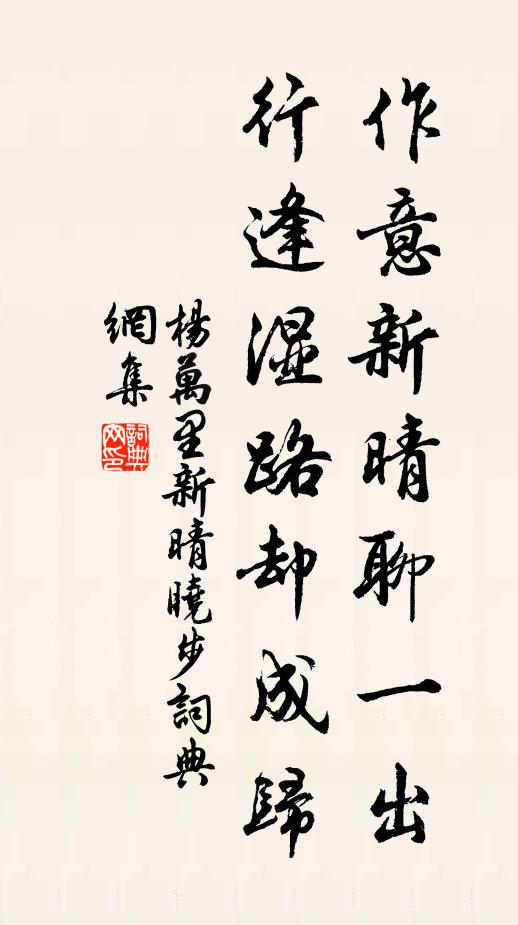 作意新晴聊一出
行逢湿路却成歸
楊萬里新晴曉步詞典
網集
詞典
网印